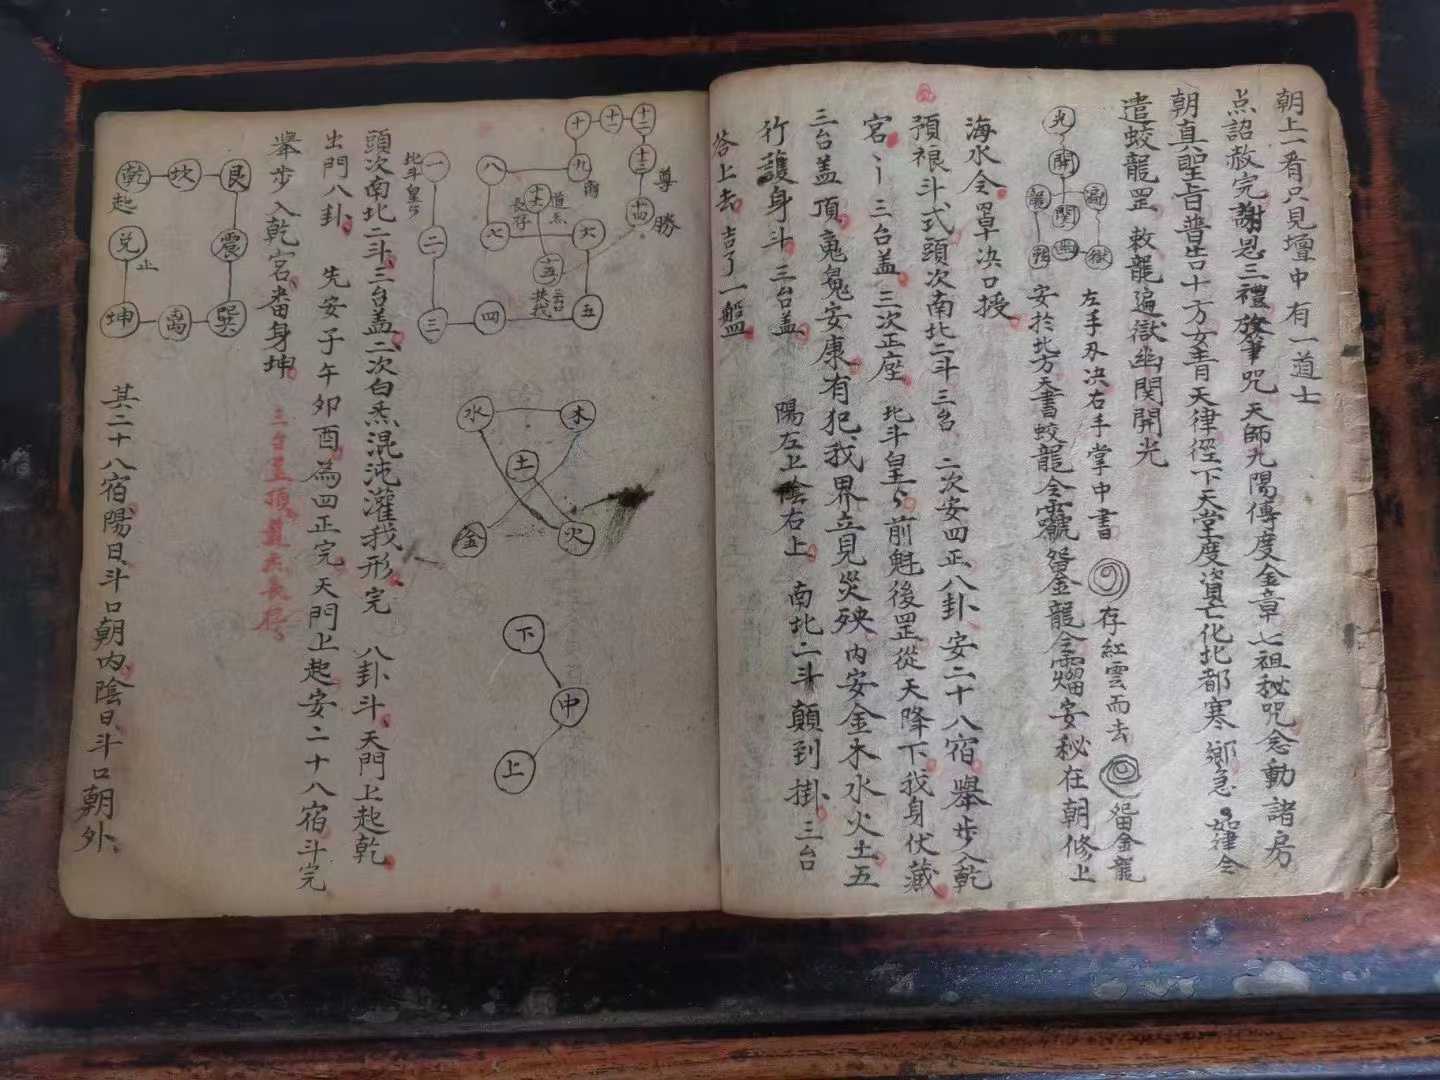 朝上一看只見壇中有一道士
点詔赦完謝恩三禮放筆咒 天師九陽傳度金章七祖秘咒念動諸房
朝真聖旨普告十方女青天律徑下天堂度資亡化北都寒鄉急如律令
遣蛟龍罡敕龍遍獄幽関開光
九
開
龍
関
遍
獄
左手刃决右手掌中書
存紅雲而去
金龍
安於北方天書蛟龍
金龍
安秘在朝修上
海水令罩决口授
預禒斗式頭次南北二斗三台二次安四正八卦安二十八宿舉步入乾
宮〻三台盖三次正座 北斗皇〻前魁後罡從天降下我身伏藏
三台盖頂䰟䰟安康有犯我界立見災殃内安金木水火土五
行護身斗三台盖 陽左上陰右上 南北二斗顛到掛三台
答上去吉了一盤
十二
十一
十
十三
尊
勝
十四
九
八
七
六
道炁
長存
五
四
三
二
一
北斗皇〻
水
木
土
金
火
下
中
上
頭次南北二斗三台盖二次白炁混沌灌我形完 八卦斗天門上起乾
出門八卦 先安子午卯酉為四正完天門上起安二十八宿斗完
舉步入乾宮番身坤
三台盖頂道炁長存
艮
坎
乾
起
震
兑
止
巽
离
坤
其二十八宿陽日斗口朝内陰日斗口朝外